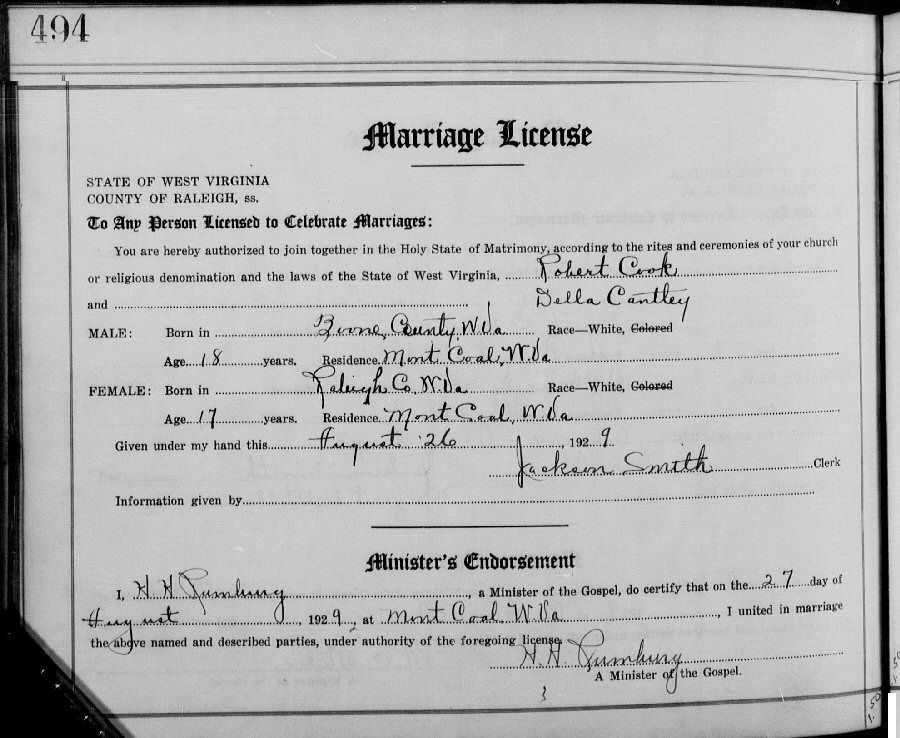 494
Marriage License
STATE OF WEST VIRGINIA
COUNTY OF RALEIGH, ss.
To Any Person Licensed to Celebrate Marriages:
You are hereby authorized to join together in the Holy State of Matrimony, according to the rites and ceremonies of your church
or religious denomination and the laws of the State of West Virginia, Robert Cook
and Della Cantley
MALE: Born in Boone, County, W.Va Race—White, Colored
Age 18 years. Residence Mont Coal, W.Va
FEMALE: Born in Raleigh Co, W.Va Race—White, Colored
Age 17 years. Residence Mont Coal, W.Va
Given under my hand this August 26, 1929
Jackson Smith Clerk
Information given by
Minister's Endorsement
I, H. H. Rumburg, a Minister of the Gospel, do certify that on the 27 day of
August, 1929, at Mont Coal W.Va, I united in marriage
the above named and described parties, under authority of the foregoing license.
H. H. Rumburg
A Minister of the Gospel.